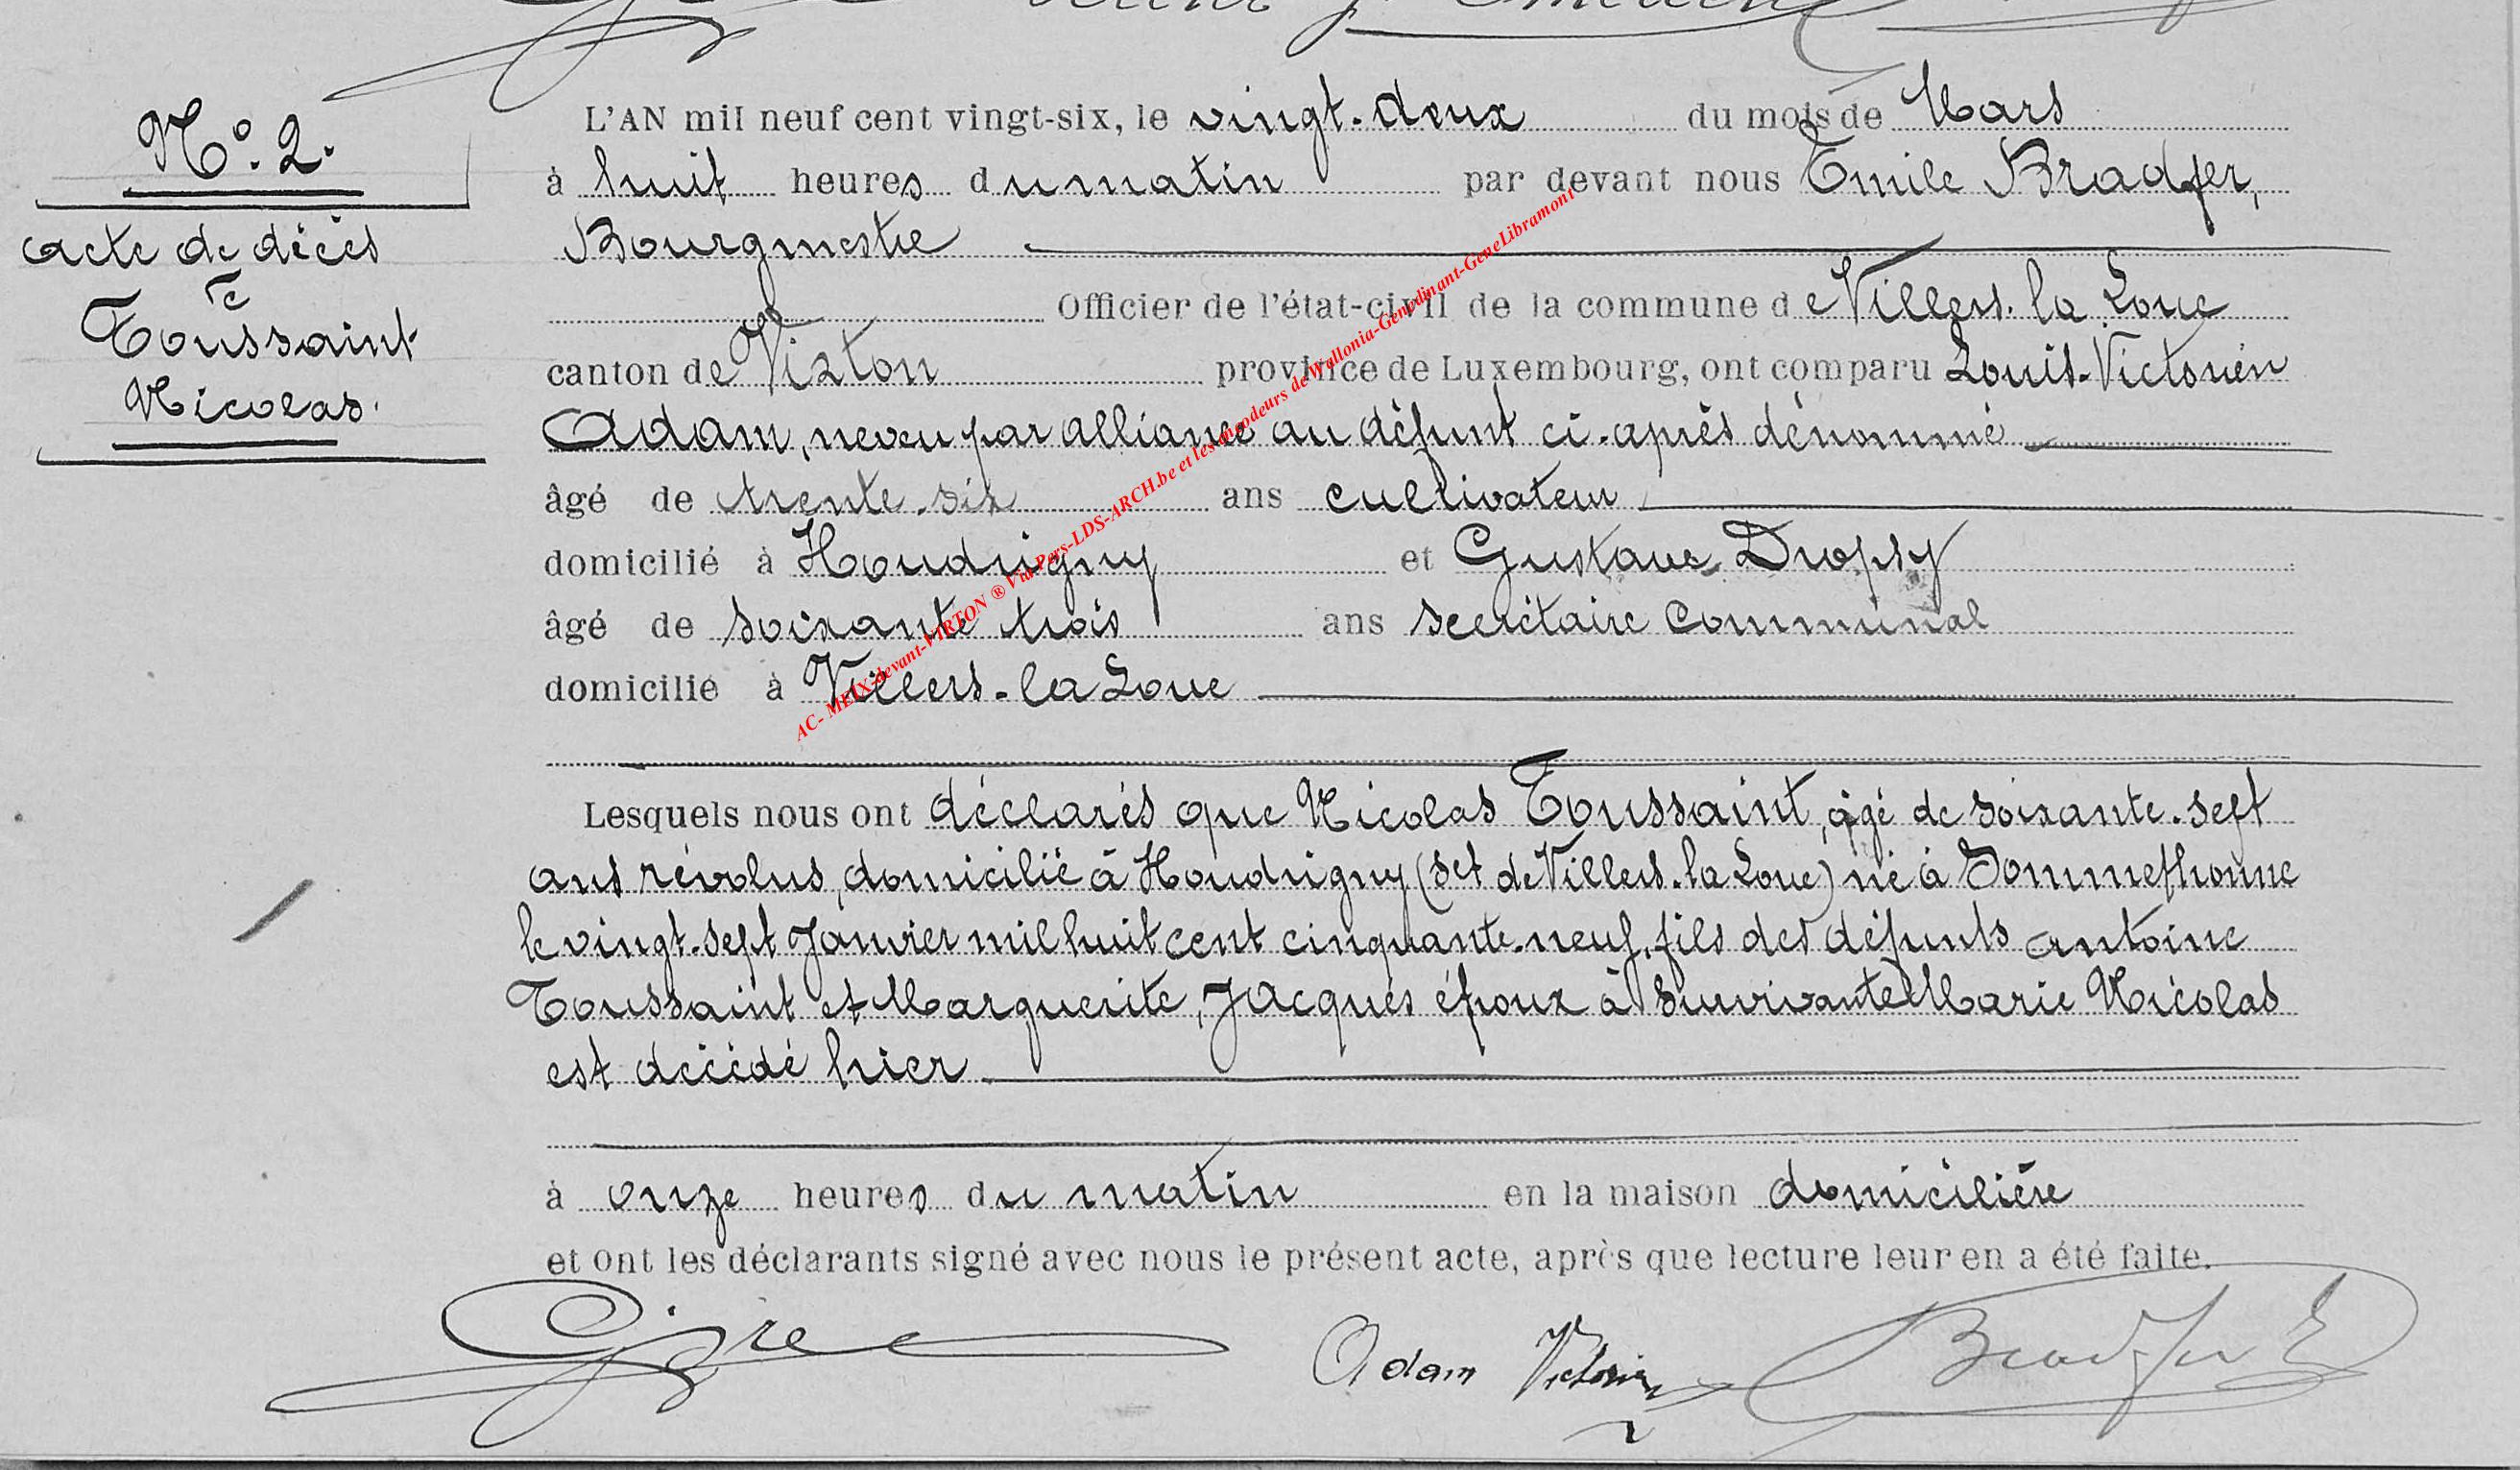 N° 2.
acte de décès
de
Toussaint
Nicolas.
L'AN mil neuf cent vingt-six, le vingt-deux du mois de Mars
à huit heures du matin par devant nous Emile Bradfer,
Bourgmestre
Officier de l'état-civil de la commune de Villers-la-Loue
canton de Virton province de Luxembourg, ont comparu Louis-Victorien
Adam, neveu par alliance au défunt ci-après dénommé
âgé de trente-six ans cultivateur
domicilié à Houdrigny et Gustave Dropsy
âgé de soixante trois ans secrétaire communal
domicilié à Villers-la Loue
Lesquels nous ont déclarés que Nicolas Toussaint, âgé de soixante-sept
ans révolus, domicilié à Houdrigny (sct de Villers-la Loue) né à Sommethonne
le vingt-sept Janvier mil huit cent cinquante-neuf, fils des défunts Antoine
Toussaint et Marguerite, Jacques époux à survivante Marie Nicolas
est décédé hier
à onze heures du matin en la maison domicilière
et ont les déclarants signé avec nous le présent acte, après que lecture leur en a été faite.
Adam Victorien Bradfer E
AC- MEIX-devant-VIRTON ® Via Pers-LDS-ARCH.be et les encodeurs de Wallonia-Genedinant-GeneLibramont